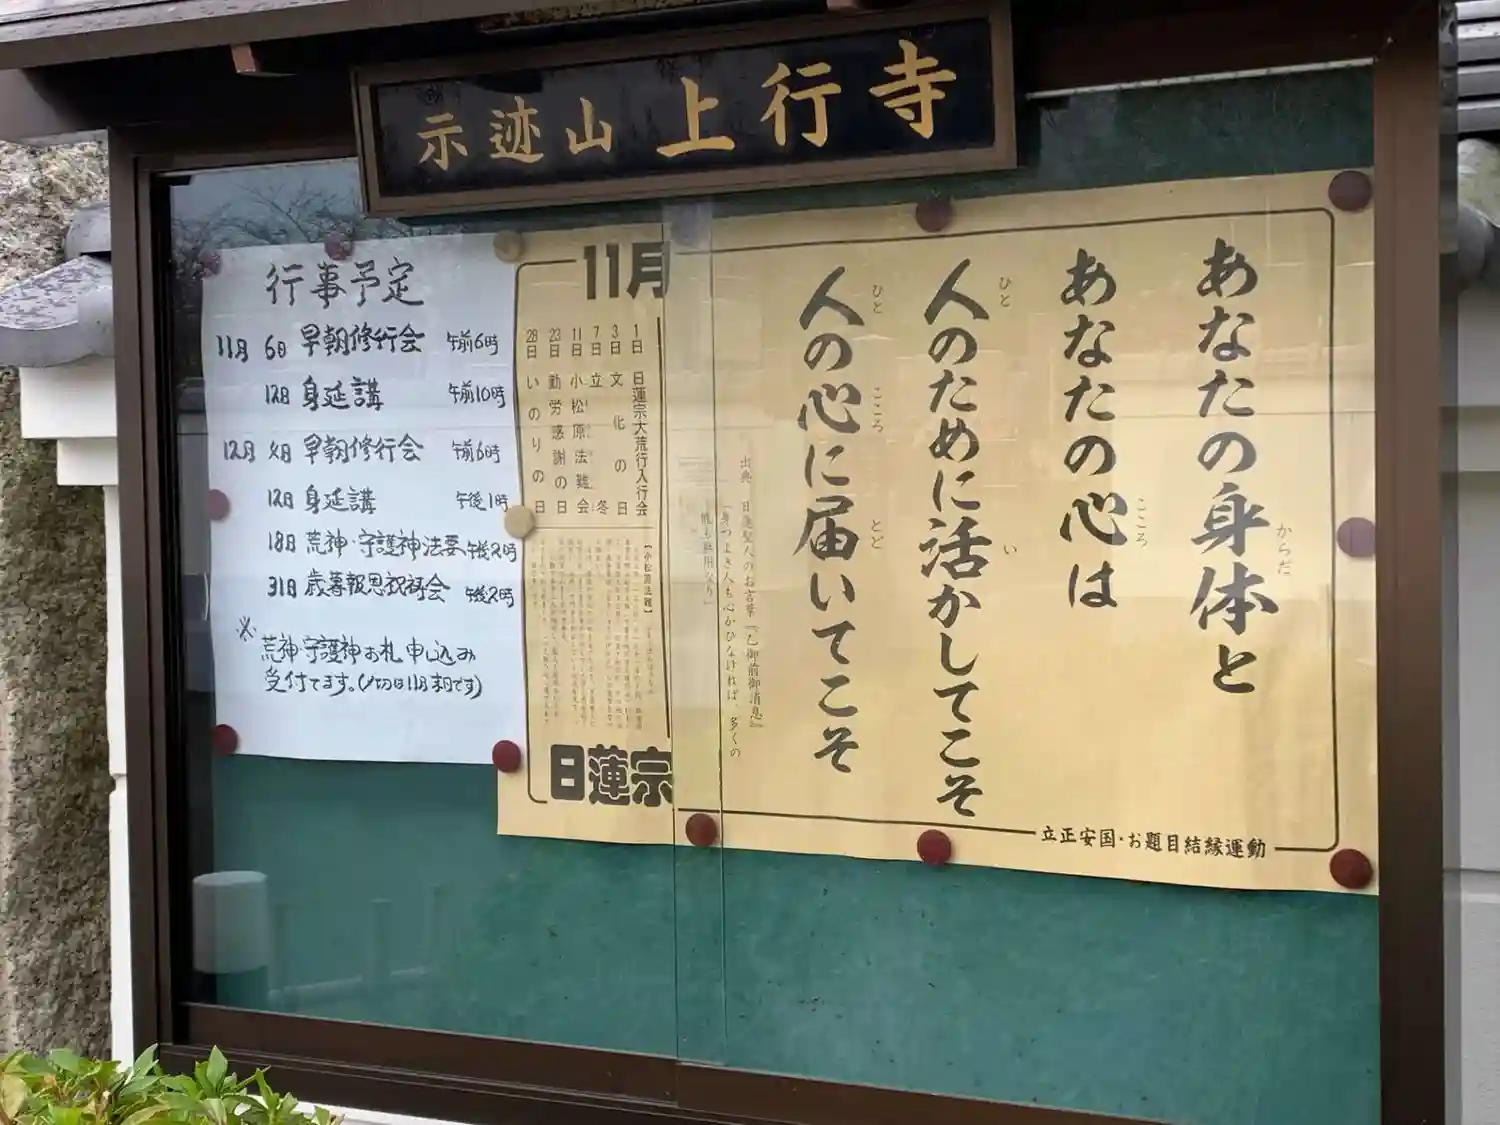 示迹山 上行寺
あなたの身体と
からだ
あなたの心は
こころ
人のために活かしてこそ
ひと
い
人の心に届いてこそ
ひと
こころ
とど
出典 日蓮聖人のお言葉『乙御前御消息』
「身つよき人も心かひなければ、多くの
能も無用なり」
立正安国・お題目結縁運動
11月
1日 日蓮宗大荒行入行会
3日 文化の日
7日 立冬
11日 小松原法難会
23日 勤労感謝の日
28日 いのりの日
【小松原法難】
日蓮宗
行事予定
11月 6日 早朝修行会 午前6時
12日 身延講 午前10時
12月 4日 早朝修行会 午前6時
12日 身延講 午後1時
18日 荒神・守護神法要 午後2時
31日 歳暮報恩祝祷会 午後2時
※ 荒神・守護神お札申し込み
受付てます。(〆切は11月末日です)